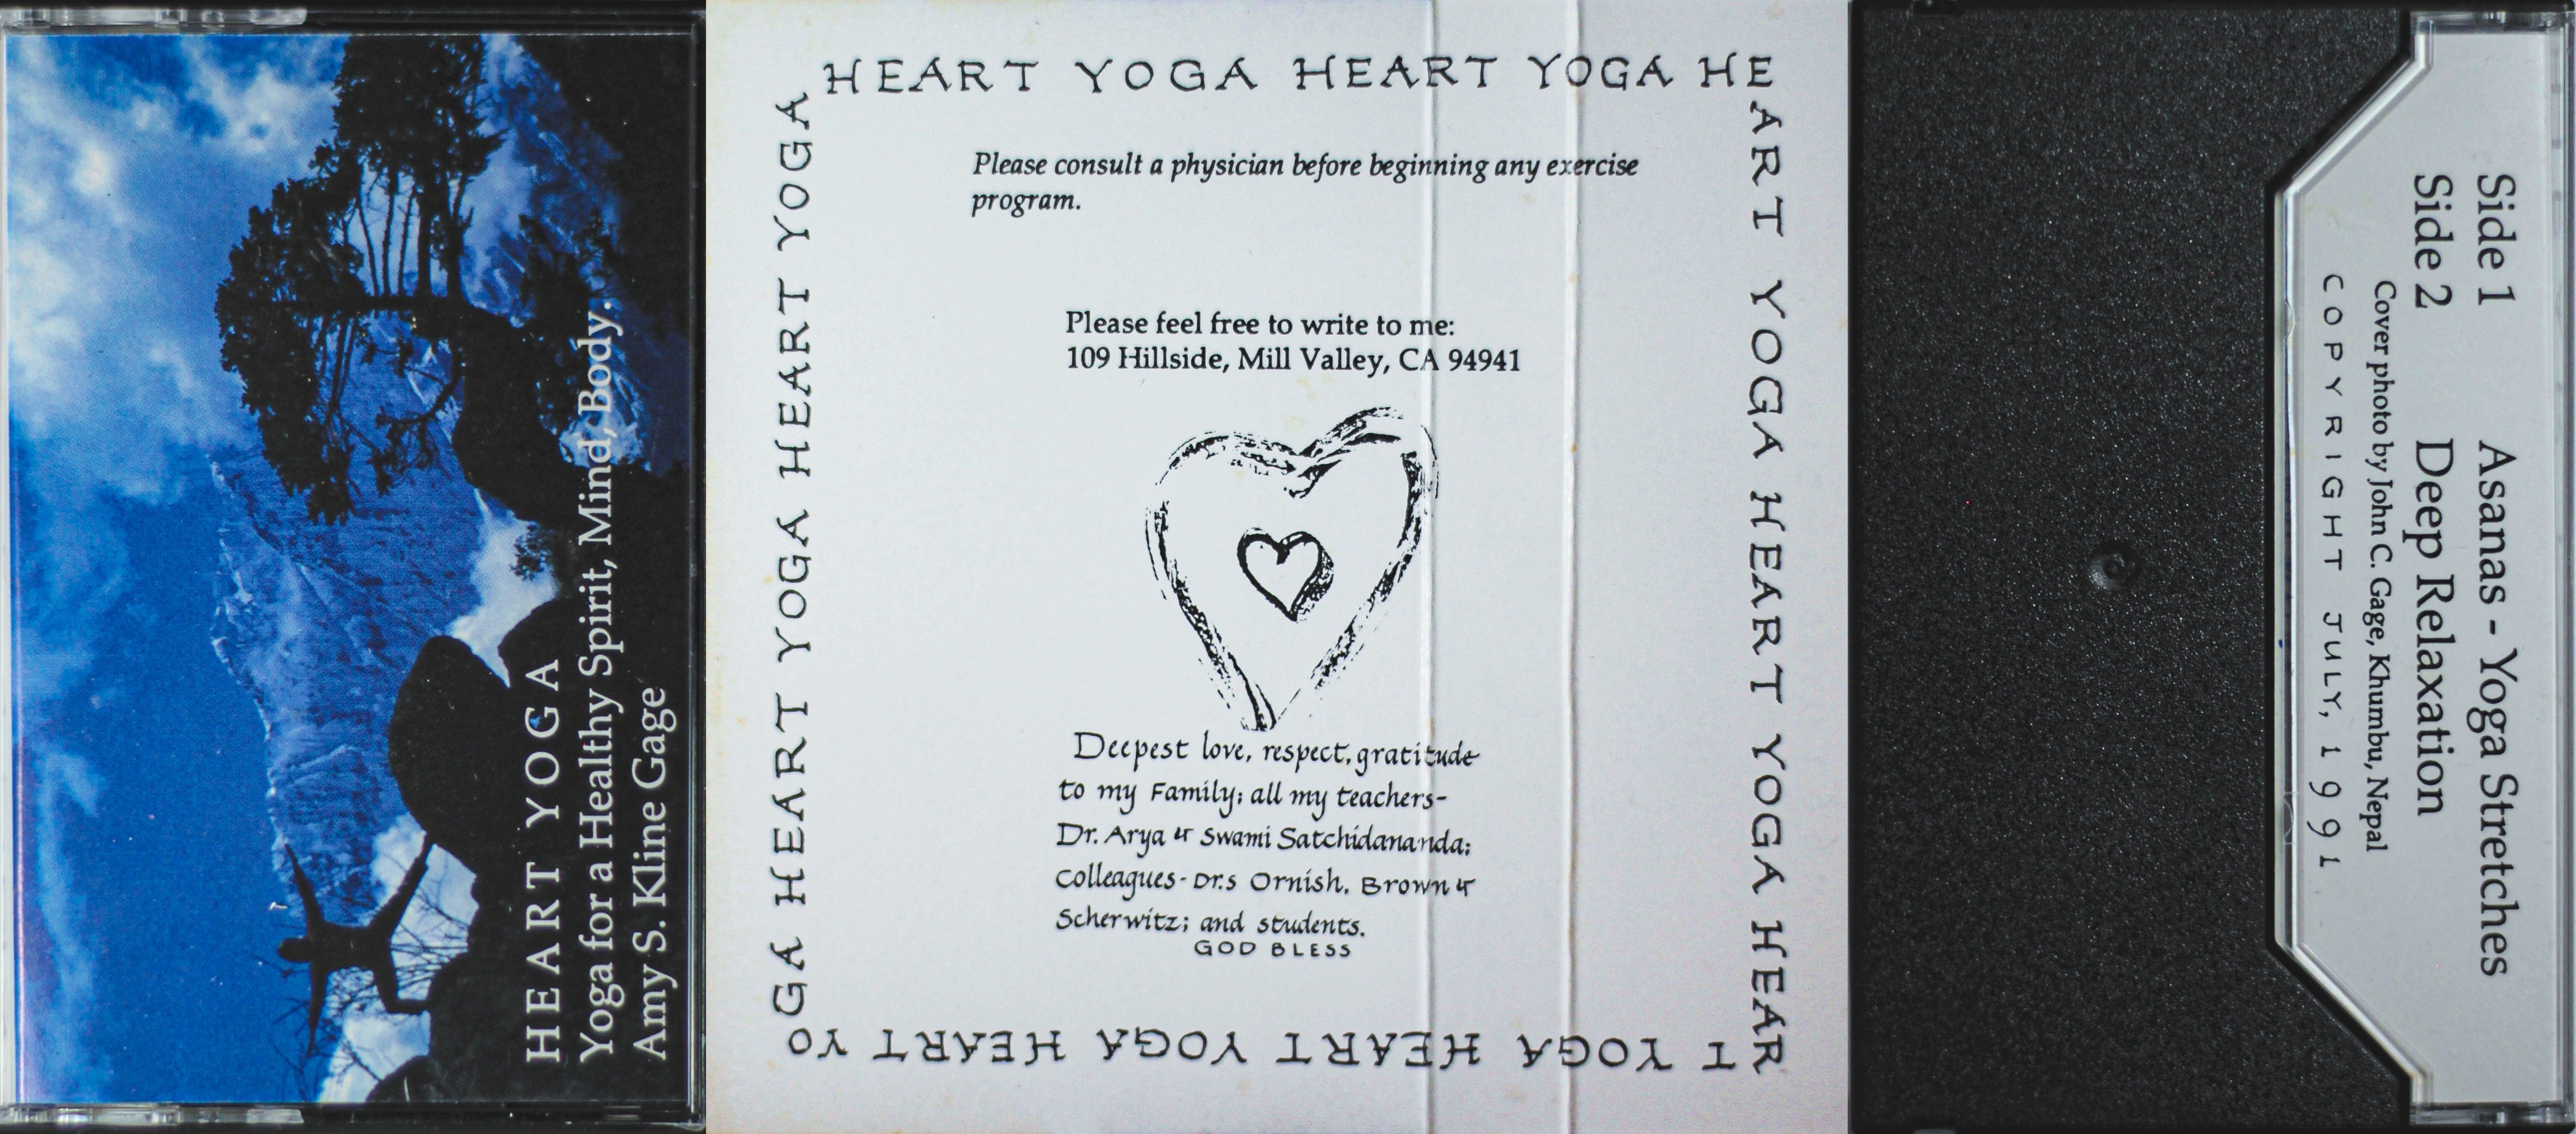 HEART YOGA
Yoga for a Healthy Spirit, Mind, Body.
Amy S. Kline Gage
HEART YOGA HEART YOGA HE
ART YOGA HEART YOGA HEAR
T YOGA HEART YOGA HEART YO
GA HEART YOGA HEART YOGA
Please consult a physician before beginning any exercise
program.
Please feel free to write to me:
109 Hillside, Mill Valley, CA 94941
Deepest love, respect, gratitude
to my Family; all my teachers-
Dr. Arya & Swami Satchidananda;
Colleagues - Dr.s Ornish, Brown &
Scherwitz; and students.
GOD BLESS
Side 1 Asanas - Yoga Stretches
Side 2 Deep Relaxation
Cover photo by John C. Gage, Khumbu, Nepal
COPYRIGHT JULY, 1991